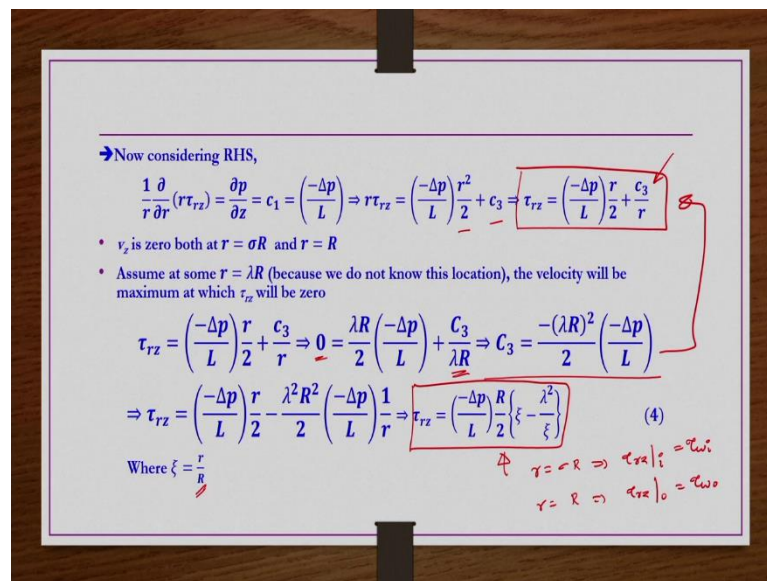 ➔Now considering RHS,
1/r ∂/∂r (rτ_rz) = ∂p/∂z = c₁ = (−Δp/L) ⇒ rτ_rz = (−Δp/L) r²/2 + c₃ ⇒ τ_rz = (−Δp/L) r/2 + c₃/r
• v_z is zero both at r = σR and r = R
• Assume at some r = λR (because we do not know this location), the velocity will be
maximum at which τ_rz will be zero
τ_rz = (−Δp/L) r/2 + c₃/r ⇒ 0 = λR/2 (−Δp/L) + C₃/λR ⇒ C₃ = −(λR)²/2 (−Δp/L)
⇒ τ_rz = (−Δp/L) r/2 − λ²R²/2 (−Δp/L) 1/r ⇒ τ_rz = (−Δp/L) R/2 {ξ − λ²/ξ} (4)
Where ξ = r/R
r = σR ⇒ τ_rz|i = τ_wi
r = R ⇒ τ_rz|o = τ_wo